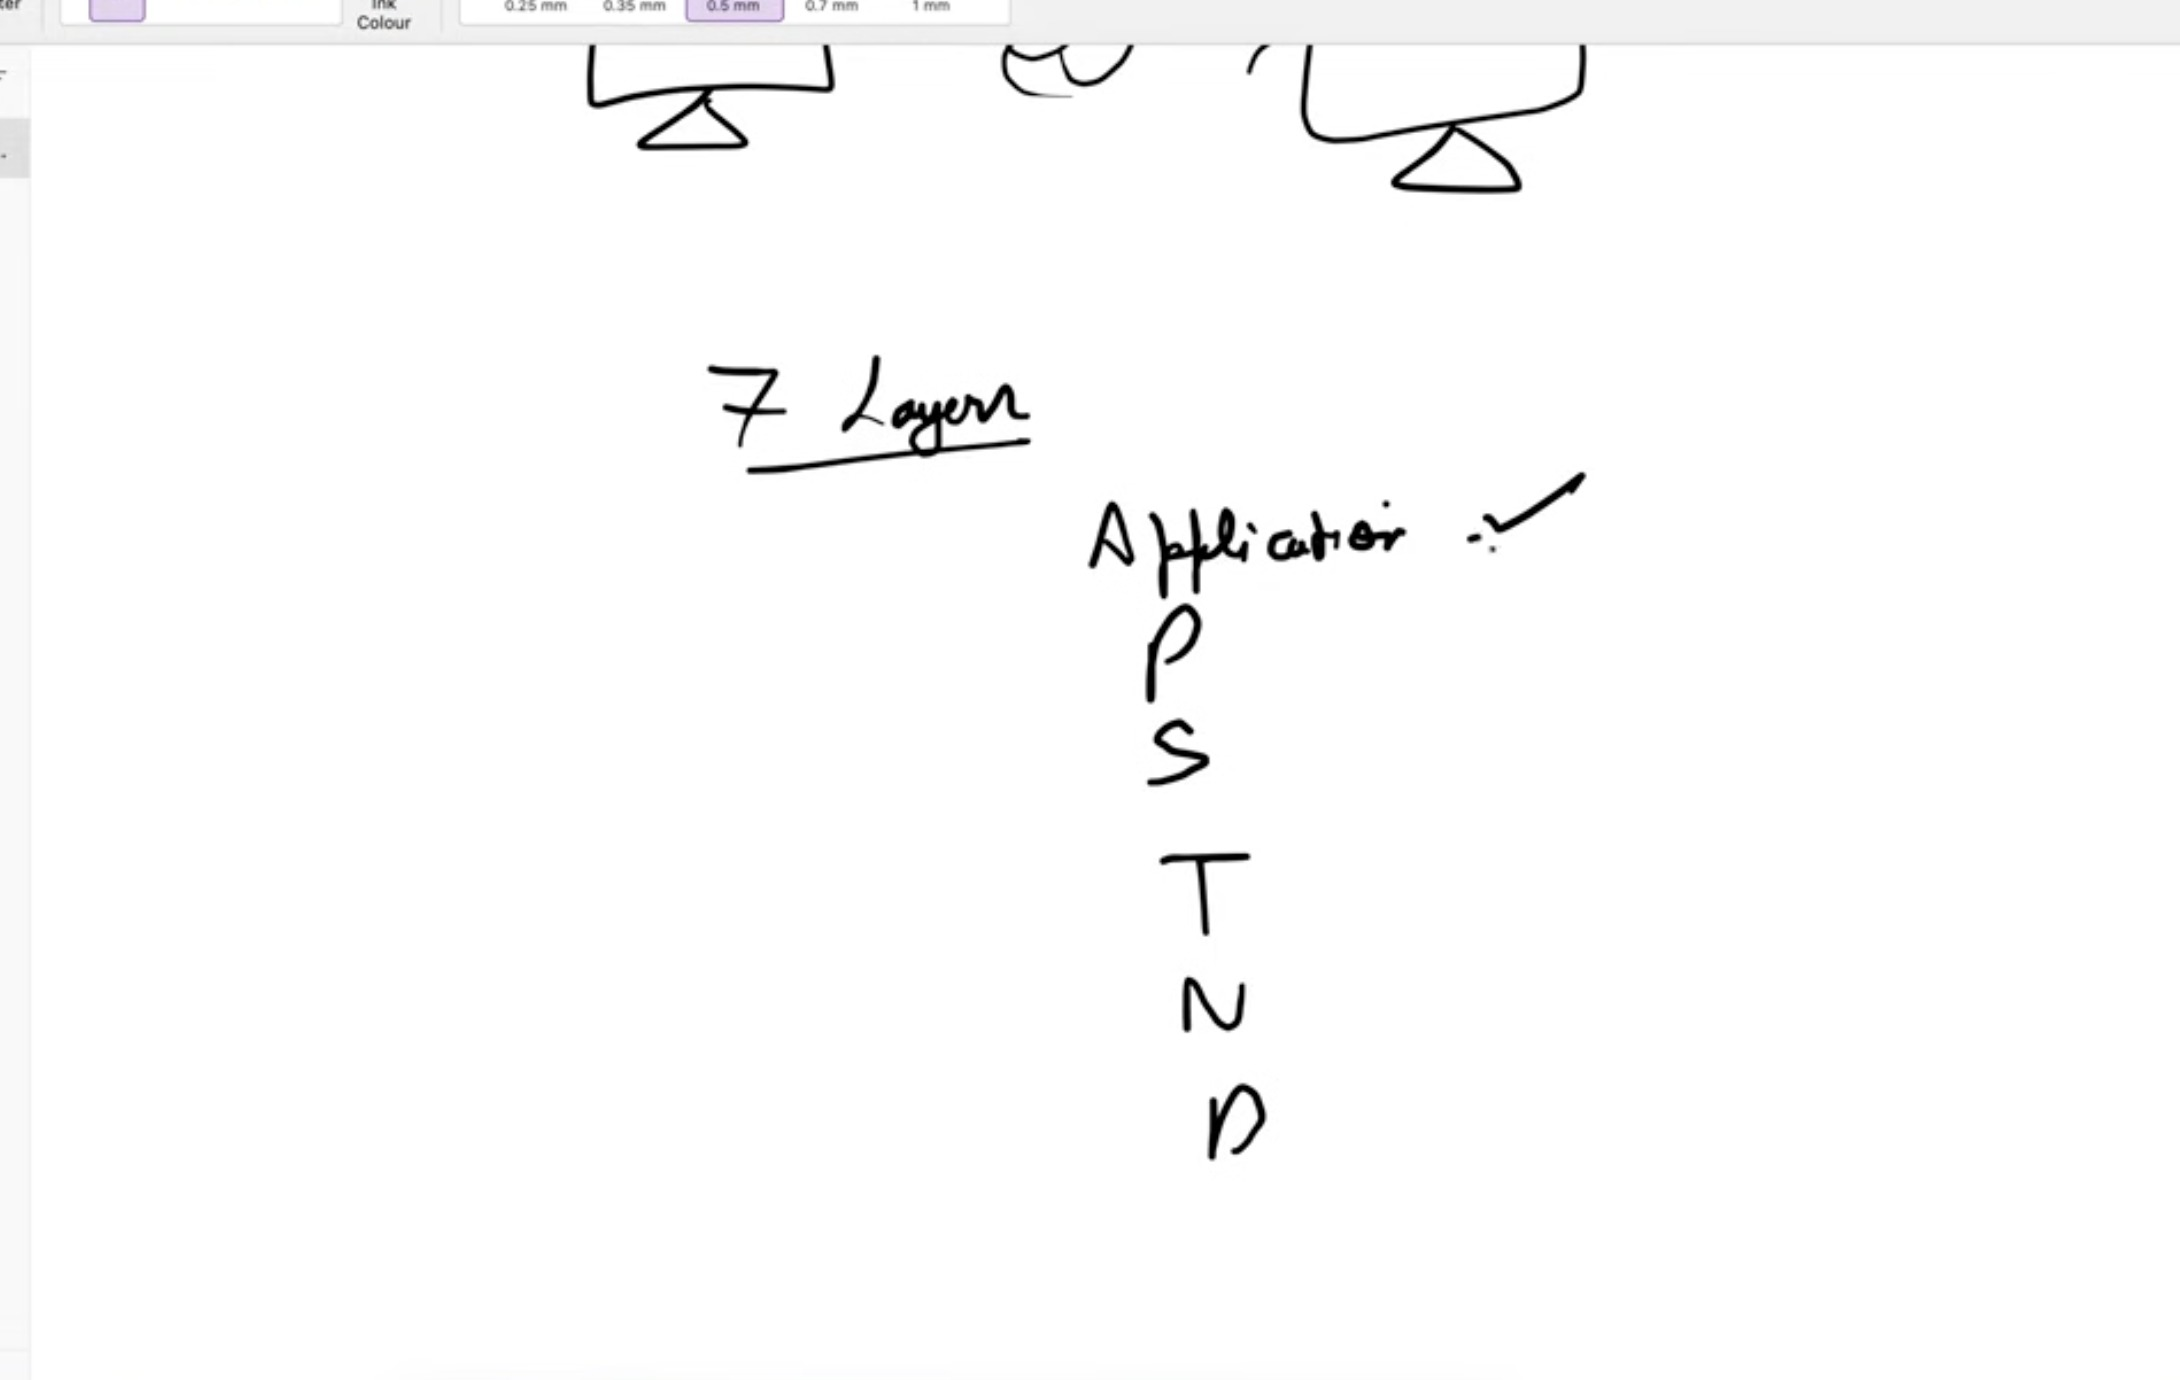 Ink
Colour
0.25 mm 0.35 mm 0.5 mm 0.7 mm 1 mm
7 Layers
Application
P
S
T
N
D